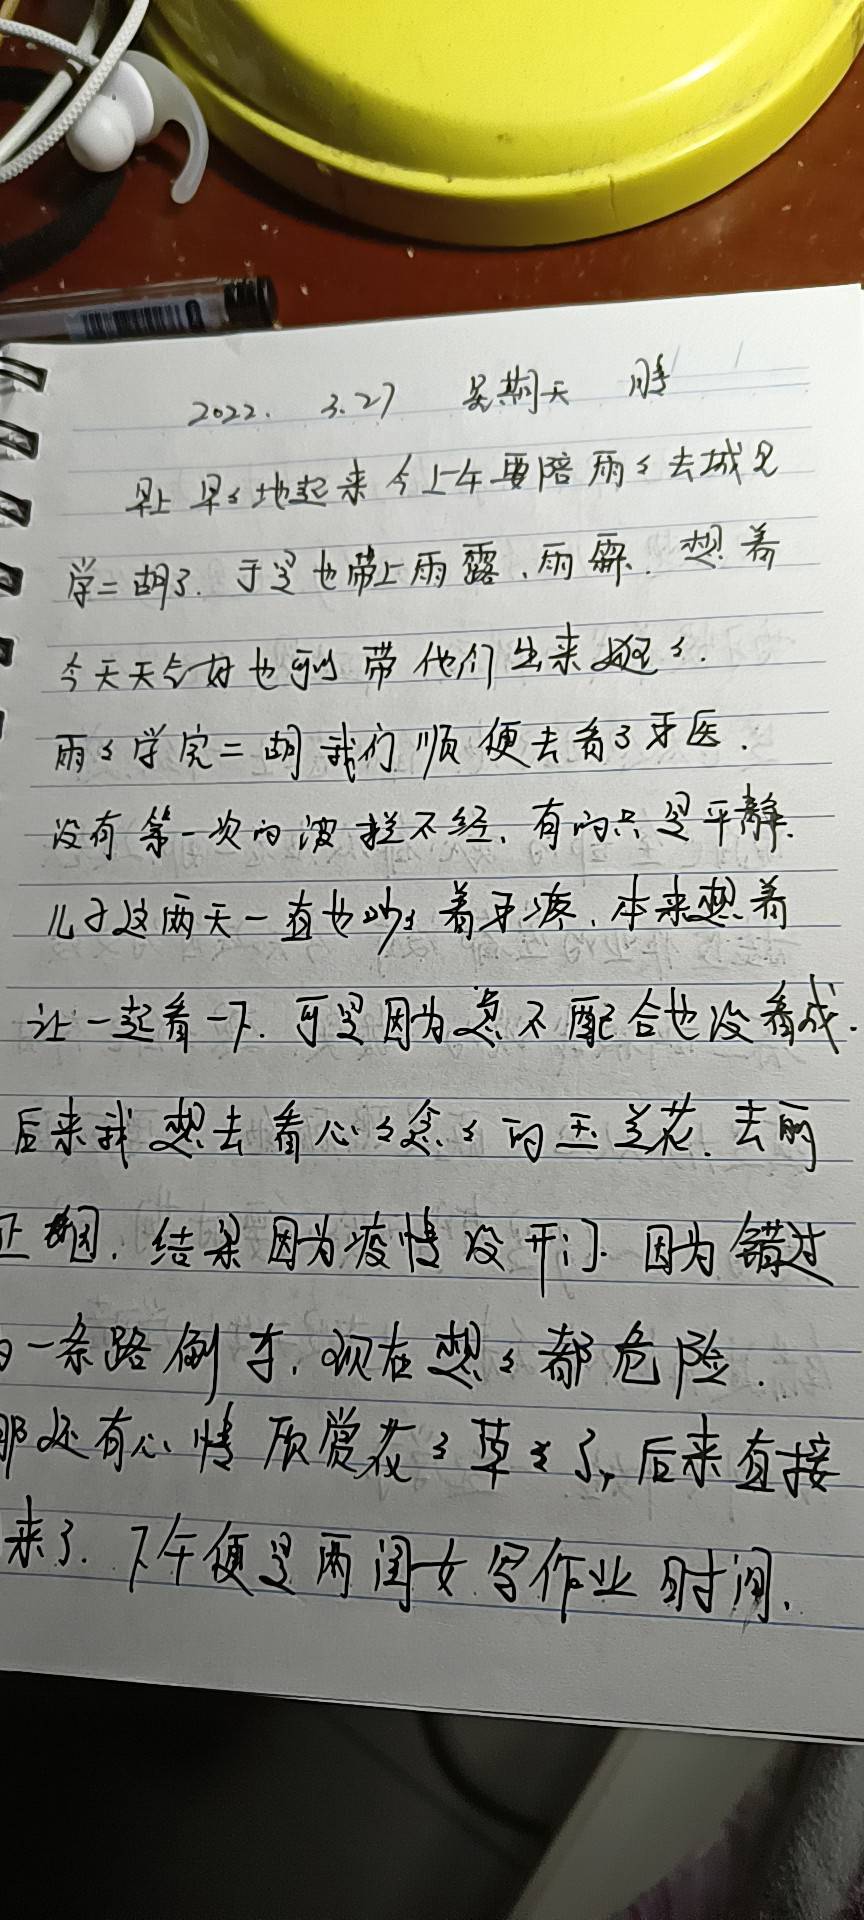 2022. 3.27 星期天 晴
早上早々地起来今上午要陪雨々去城儿
学二胡了.于是也带上雨露、雨霖.想着
今天天气好也可以带他们出来逛々.
雨々学完二胡我们顺便去看了牙医.
没有第一次的波拦不经、有的只是平静.
儿子这两天一直也吵々着牙疼、本来想着
让一起看一下.可是因为老不配合也没看成.
后来我想去看心々念々的玉兰花.去丽
正园.结果因为疫情没开门.因为错过
一条路倒车.现在想々都危险.
那还有心情欣赏花々草々了,后来直接
来了.下午便是两闺女写作业时间.